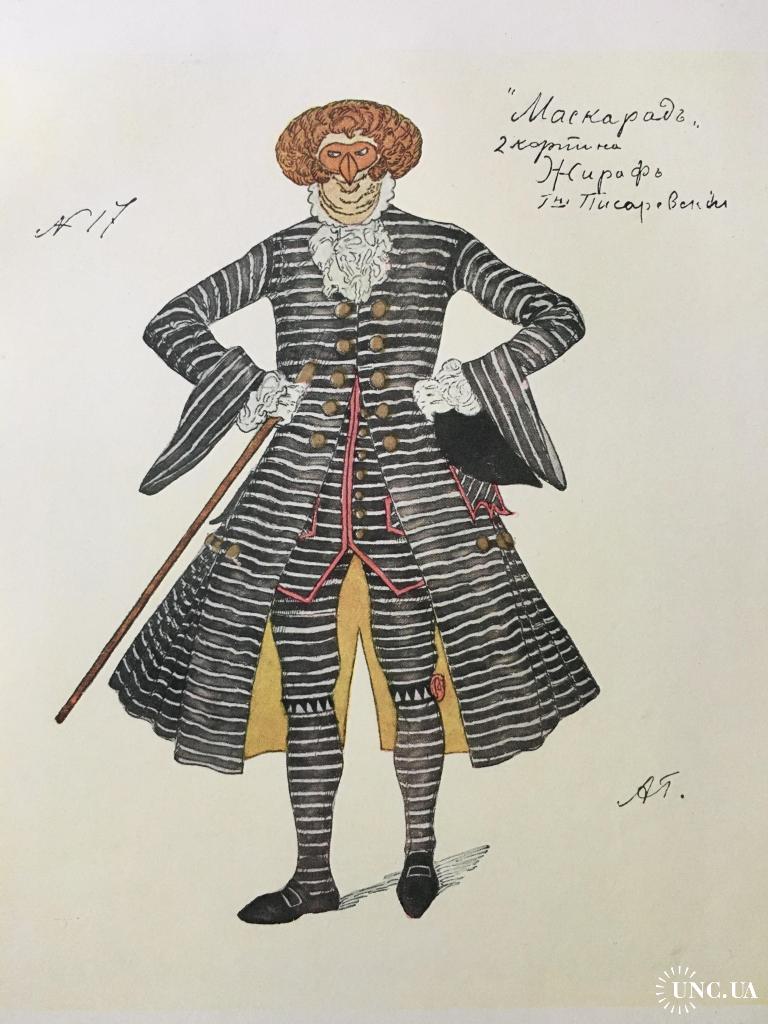 "Маскарадъ„
2 картина
Жирафъ
Гнъ Писаревскiй
N 17
АГ.
UNC.UA